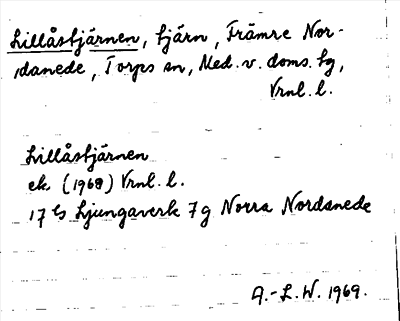 Lillåstjärnen, tjärn, Främre Nor-
danede, Torps sn, Med. v. doms. tg,
Vrnl. l.
Lillåstjärnen
ek. (1968) Vrnl. l.
17 G Ljungaverk 7 g Norra Nordanede
A.-L. W. 1969.